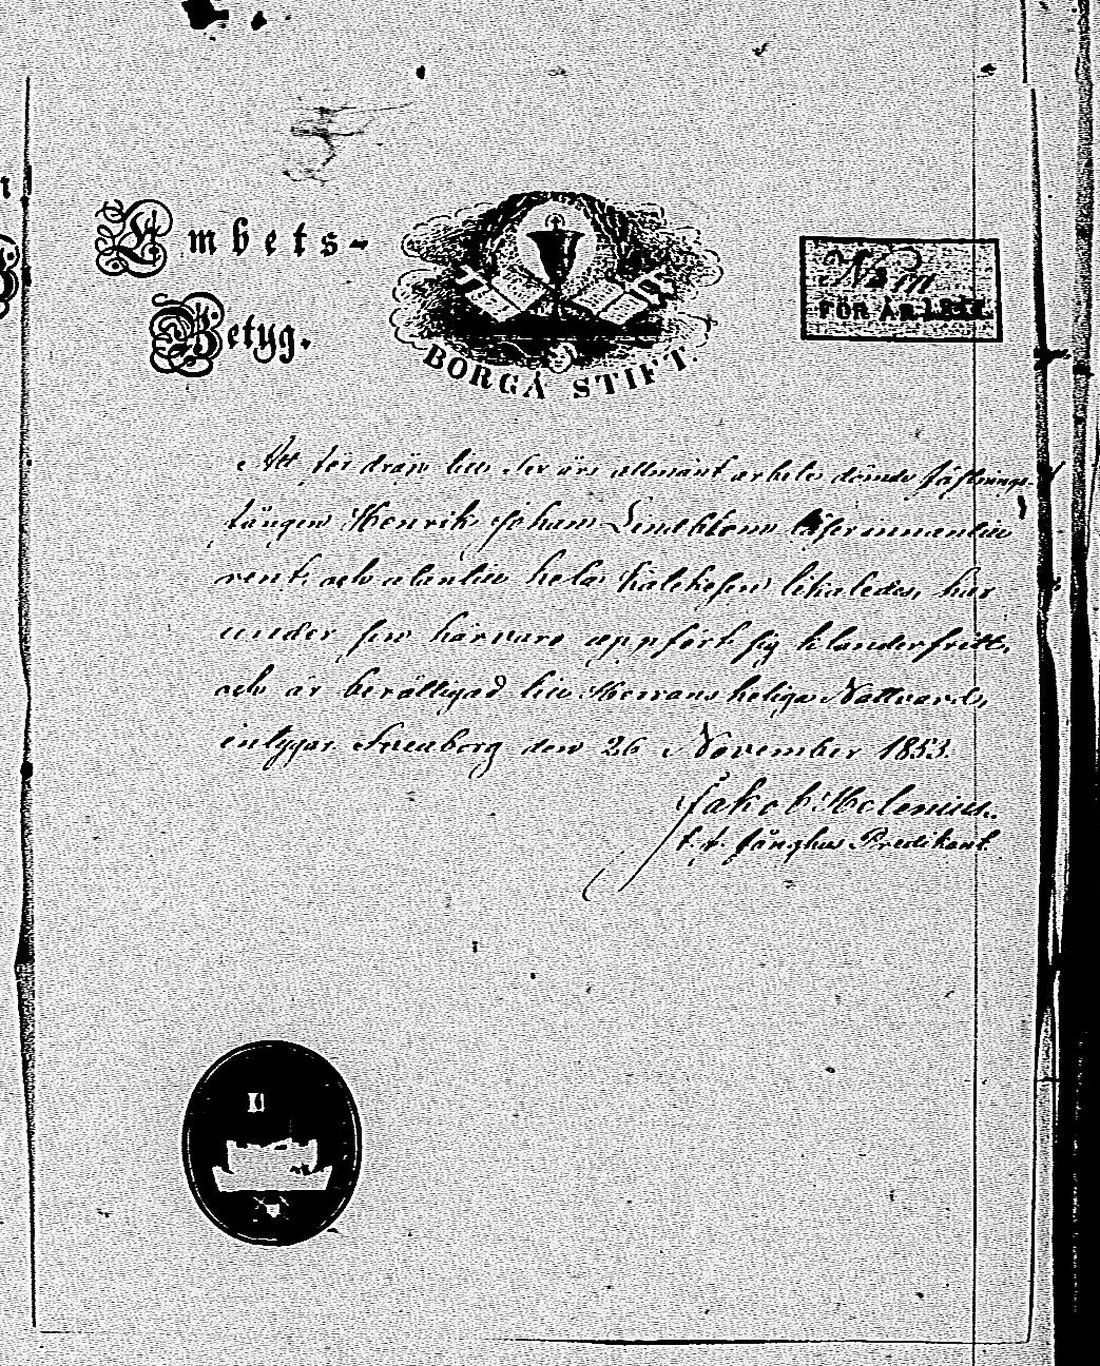 Embets-
Betyg.
BORGÅ STIFT.
FÖR ÅR
Att för ären till ärs allmänt arbete dömde fästnings-
fången Henrik Johan Lindblom läser innantill
rent, och utantill hela Katekesen likaledes, har
under sin härvaro uppfört sig klanderfritt,
och är berättigad till Herrans heliga Nattvard,
intygar. Sveaborg den 26 November 1853.
Jakob Helenius.
t. f. fånghus Predikant.